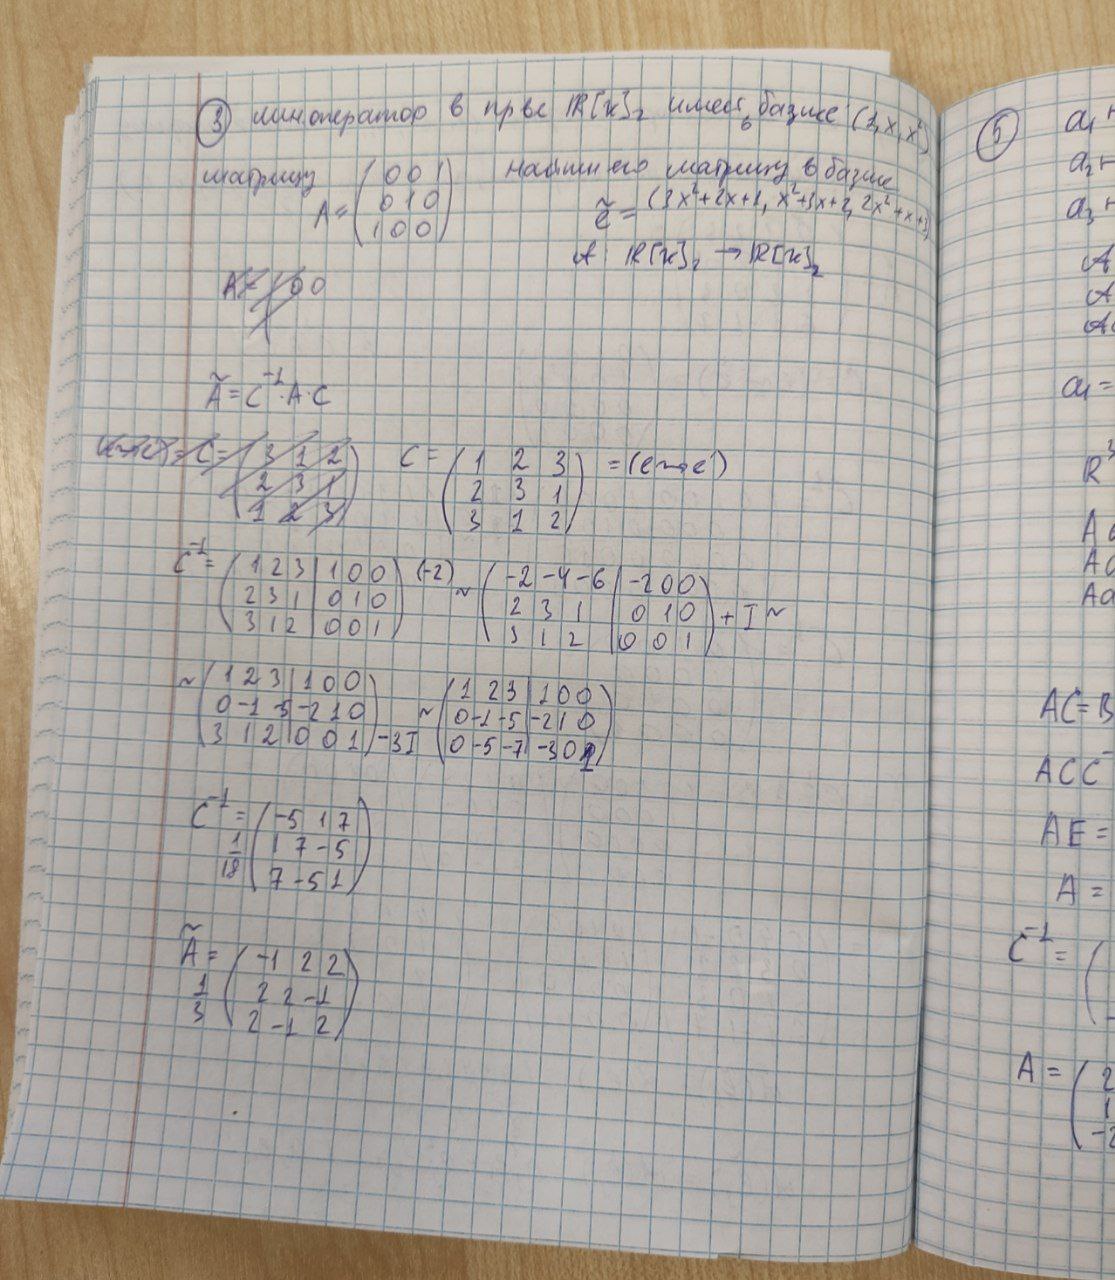 ③ лин оператор в пр-ве ℝ[x]₂ имеет в базисе (1, x, x²)
матрицу A = (0 0 1
0 1 0
1 0 0) найти его матрицу в базисе
ẽ = (3x²+2x+1, x²+3x+2, 2x²+x+3)
A: ℝ[x]₂ → ℝ[x]₂
Ã = C⁻¹·A·C
C = (3 1 2
2 3 1
1 2 3)
C = (1 2 3
2 3 1
3 1 2) = (e→e')
C⁻¹ = (1 2 3 | 1 0 0
2 3 1 | 0 1 0
3 1 2 | 0 0 1) (-2) ~ (-2 -4 -6 | -2 0 0
2 3 1 | 0 1 0
3 1 2 | 0 0 1) + I ~
~ (1 2 3 | 1 0 0
0 -1 -5 | -2 1 0
3 1 2 | 0 0 1) -3I ~ (1 2 3 | 1 0 0
0 -1 -5 | -2 1 0
0 -5 -7 | -3 0 1)
C⁻¹ = 1/18 (-5 1 7
1 7 -5
7 -5 1)
Ã = 1/3 (-1 2 2
2 2 -1
2 -1 2)
⑤
a₁
a₂
a₃
a₁ =
ℝ³
AC = B
ACC⁻
AE =
A =
C⁻¹ =
A = (2
1
-2